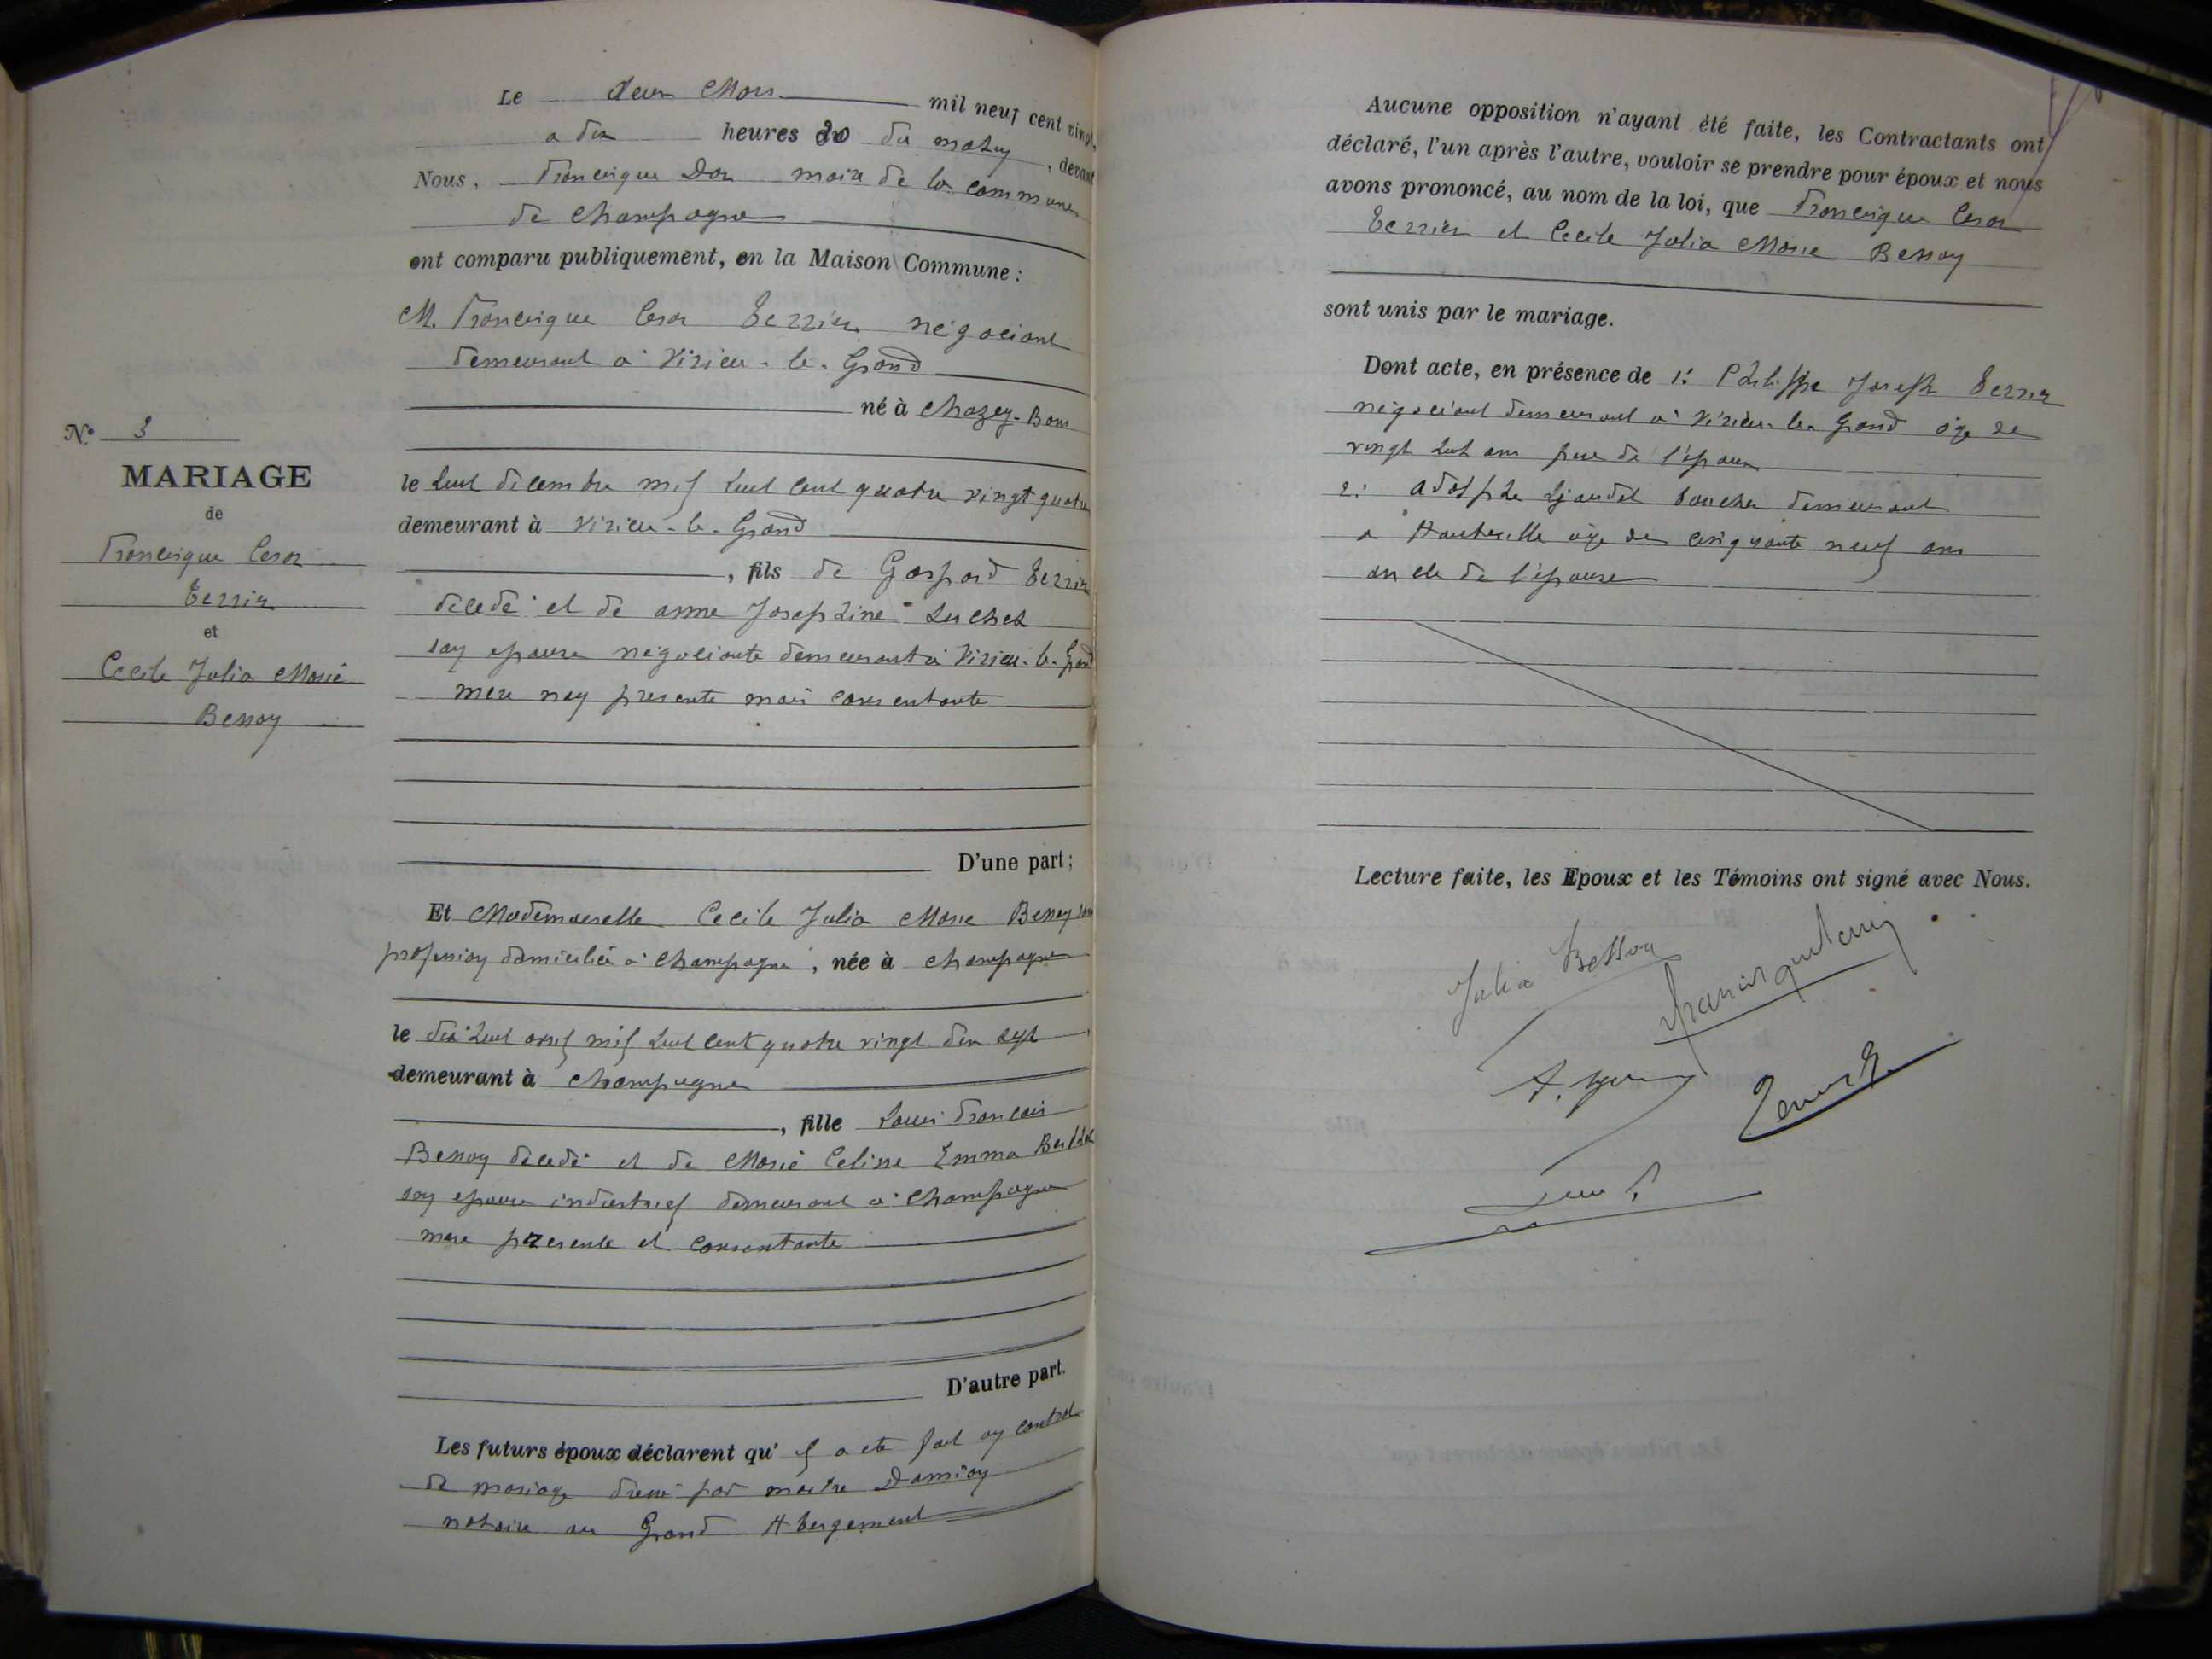 Le deux Mars mil neuf cent vingt,
a dix heures 30 du matin, devant
Nous, Francisque Dor maire de la commune
de Champagne
ont comparu publiquement, en la Maison Commune :
M. Francisque Cesar Terrier négociant
demeurant à Virieu-le-Grand
né à Chazey-Bons
N° 3
MARIAGE
de
Francisque Cesar
Terrier
et
Cecile Julia Marie
Besson
le huit décembre mil huit cent quatre vingt quatre
demeurant à Virieu-le-Grand
, fils de Gaspard Terrier
décédé et de anne Josephine
son epouse négociante demeurant à Virieu-le-Grand
mere non presente mais consentante
D'une part ;
Et Mademoiselle Cecile Julia Marie Besson sans
profession domiciliée à Champagne, née à Champagne
le dix huit avril mil huit cent quatre vingt dix sept
demeurant à Champagne
, fille Louis François
Besson décédé et de Marie Celine Emma
son epouse industriel demeurant à Champagne
mere presente et consentante
D'autre part.
Les futurs époux déclarent qu' il a ete fait un contrat
de mariage dressé par maitre Damion
notaire au Grand Abergement
Aucune opposition n'ayant été faite, les Contractants ont
déclaré, l'un après l'autre, vouloir se prendre pour époux et nous
avons prononcé, au nom de la loi, que Francisque Cesar
Terrier et Cecile Julia Marie Besson
sont unis par le mariage.
Dont acte, en présence de 1° Philippe Joseph Terrier
négociant demeurant à Virieu-le-Grand âge de
vingt huit ans frere de l'époux
2° Adolphe boucher demeurant
a Hauteville age de cinquante neuf ans
oncle de l'épouse
Lecture faite, les Epoux et les Témoins ont signé avec Nous.
Julia Besson